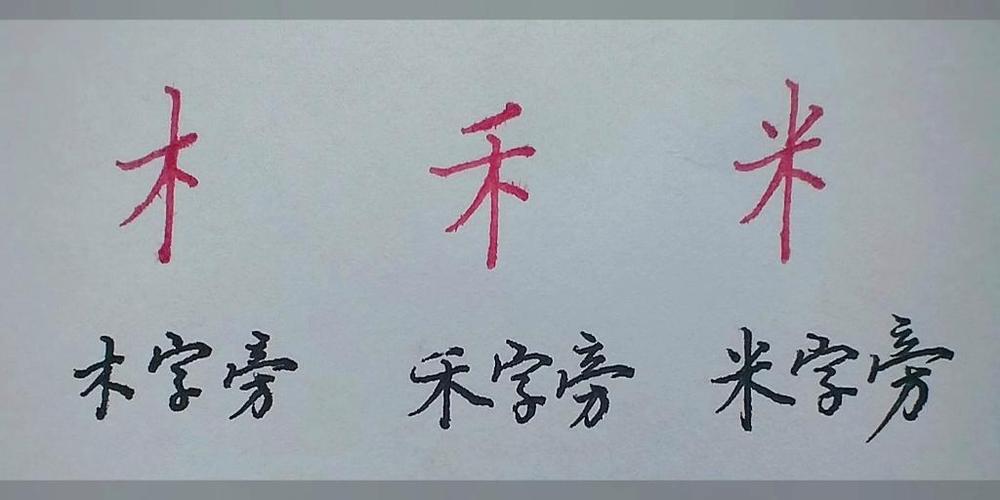 木 禾 米
木字旁 禾字旁 米字旁